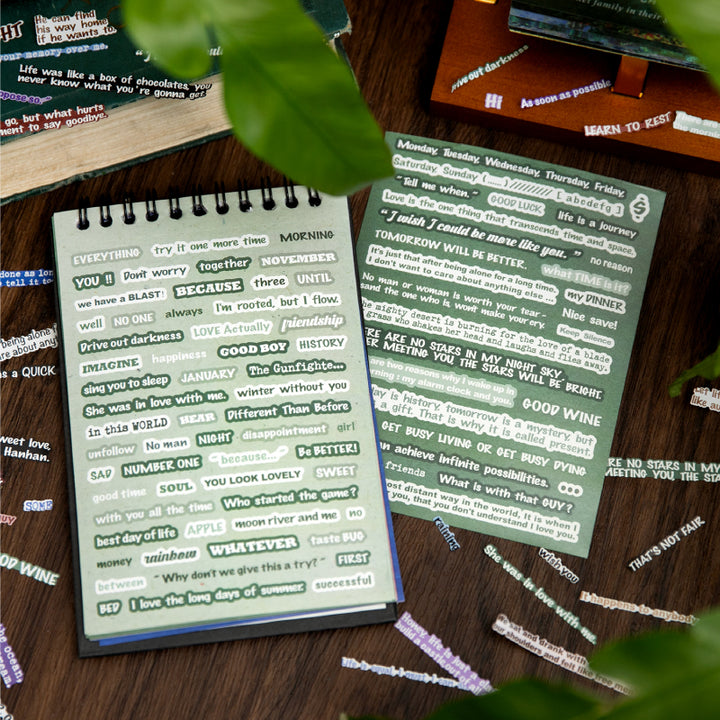 He can find
his way home
if he wants to.
your memory over me.
Life was like a box of chocolates, you
never know what you're gonna get.
go, but what hurts
ment to say goodbye.
drive out darkness
Hi
As soon as possible
LEARN TO REST
EVERYTHING try it one more time MORNING
YOU !! Don't worry together NOVEMBER
we have a BLAST! BECAUSE three UNTIL
well NO ONE always I'm rooted, but I flow.
Drive out darkness LOVE Actually friendship
IMAGINE happiness GOOD BOY HISTORY
sing you to sleep JANUARY The Gunfighte...
She was in love with me. winter without you
in this WORLD HEAR Different Than Before
unfollow No man NIGHT disappointment girl
SAD NUMBER ONE "because..." Be BETTER!
good time SOUL YOU LOOK LOVELY SWEET
with you all the time Who started the game?
best day of life APPLE moon river and me no
money rainbow WHATEVER taste BUG
between "Why don't we give this a try?" FIRST
BED I love the long days of summer. successful
Monday, Tuesday, Wednesday, Thursday, Friday,
Saturday, Sunday {......} ////////// [ abcdefg ]
"Tell me when." GOOD LUCK life is a journey
Love is the one thing that transcends time and space.
"I wish I could be more like you." no reason
TOMORROW WILL BE BETTER. what TIME is it?
It's just that after being alone for a long time,
I don't want to care about anything else ... my DINNER
No man or woman is worth your tear- Nice save!
sand the one who is, won't make your cry. Keep Silence
the mighty desert is burning for the love of a blade
grass who shakes her head and laughs and flies away.
ERE ARE NO STARS IN MY NIGHT SKY,
ER MEETING YOU THE STARS WILL BE BRIGHT.
are two reasons why I wake up in
rning : my alarm clock and you. GOOD WINE
day is history, tomorrow is a mystery, but
a gift. That is why it is called present.
GET BUSY LIVING OR GET BUSY DYING
an achieve infinite possibilities.
friends What is with that GUY?
most distant way in the world, It is when I
you, that you don't understand I love you.
done as lon
e tell it to
being alone
are about any
as a QUICK
weet love,
Hanhan.
SOME
OOD WINE
the ocean
RE NO STARS IN MY
MEETING YOU THE STAR
raining
She was in love with me.
wish you
THAT'S NOT FAIR
I happens to anybody
Honey, life is just a
build a castle
he sat and drank with
r shoulders and felt like free men